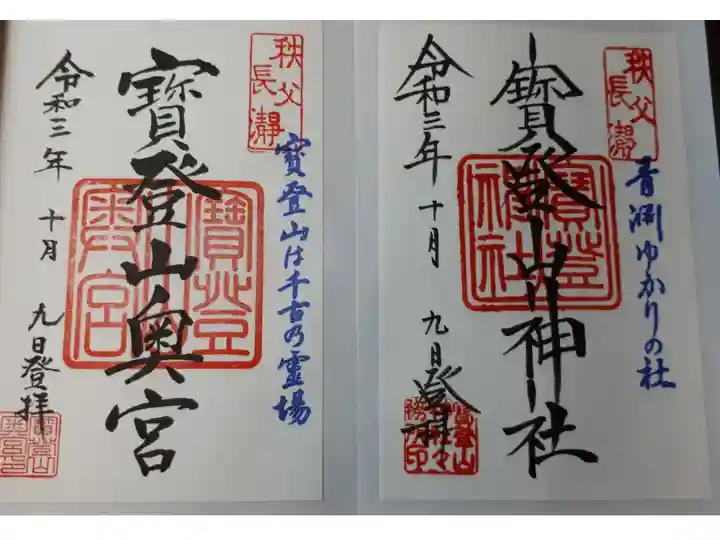 秩父
長瀞
青淵ゆかりの社
寶登山神社
寶登山
神社
令和三年 十月 九日登拝
秩父
長瀞
寶登山は千古乃霊場
寶登山奥宮
寶登山
奥宮
令和三年 十月 九日登拝